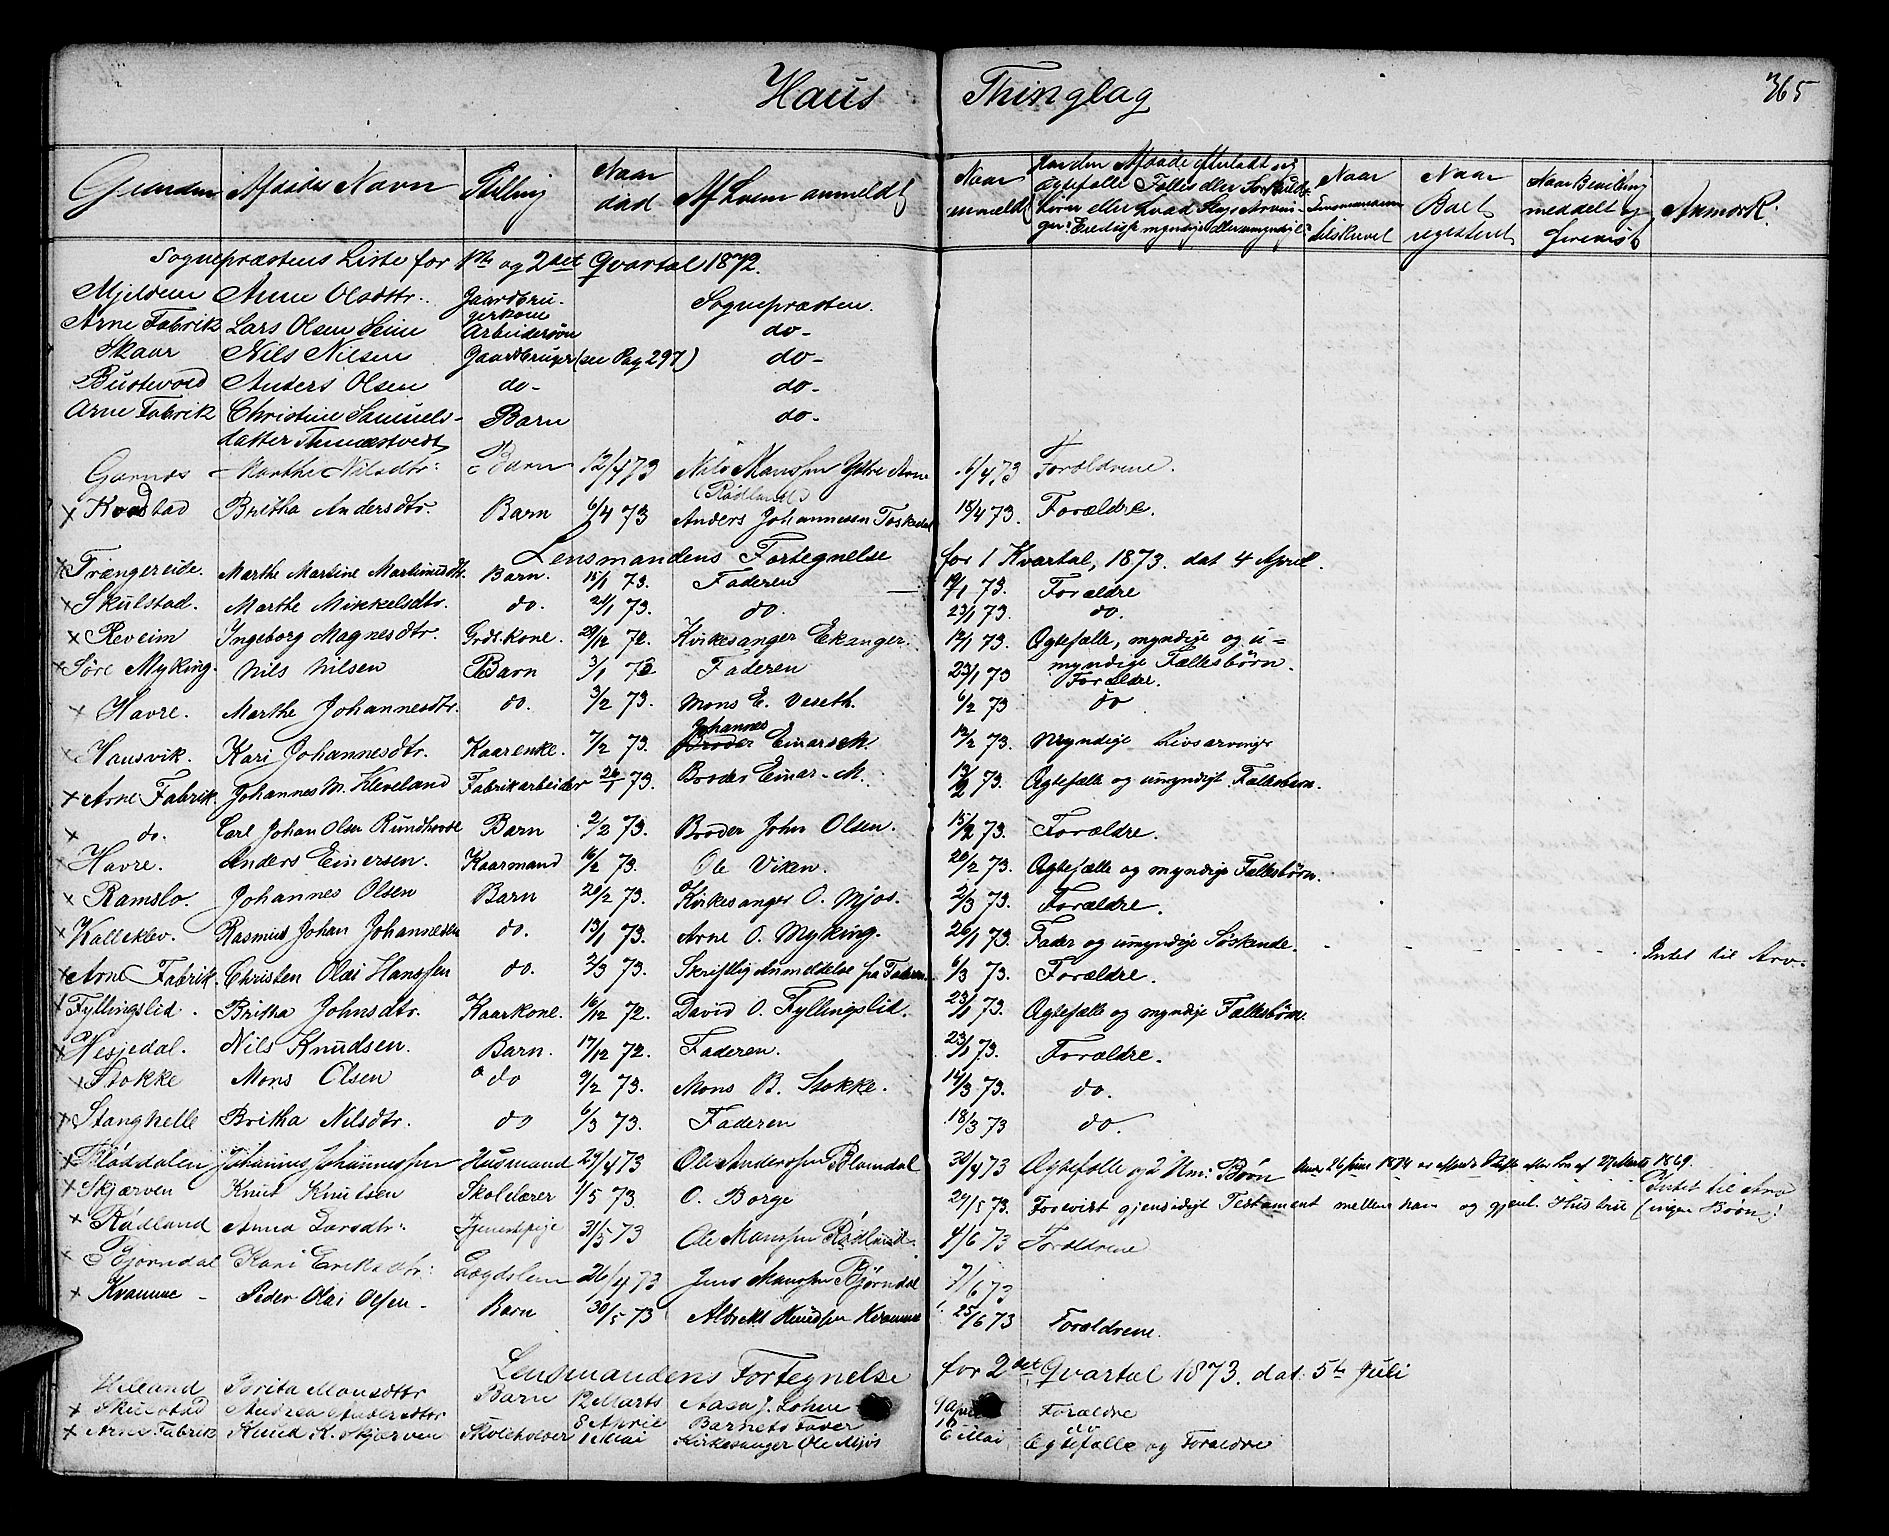 Haus Thinglag 365
Gaarden Afdødes Navn Stilling Naar død Af hvem anmeldt Naar anmeldt Har den Afdøde efterladt sig Ægtefælle Fælles eller Særkuld- børn eller hvad slags Arvin- ger: Ere disse myndige eller umyndige Naar Lensmanden tilskrevet Naar Boet registeret Naar Bevilling meddelt og forevist Anmærk:
Sognepræstens Liste for 1ste og 2det Qvartal 1872.
Mjeldem Anne Olsdtr. Gaardbru- Sognepræsten.
gerkone
Arne Fabrik Lars Olsen Seim Arbeidersøn do-
Skaar Nils Nilsen Gaardbruger (see Pag 297) do-
Bustevold Anders Olsen do- do-
Arne Fabrik Christine Samuels- Barn do-
datter Tunæstvedt
Garnæs Marthe Nilsdtr: Barn 12/4 73 Nils Monssen Ytre Arne 16/4 73 Forældrene.
(Rødland)
x Kvastad Britha Andersdtr. Barn 6/4 73 Anders Johannessen Toskedal 15/4 73. Forældre.
Lensmandens Fortegnelse for 1 Kvartal, 1873. dat 4 April.
x Trængereide. Marthe Martine Martinusdtr. Barn. 15/1 73. Faderen 19/1 73. Forældre
x Skulstad. Marthe Mikkelsdtr. do. 21/1 73. do. 23/1 73. do.
x Reveim Ingeborg Magnesdtr. Grdb.kone. 29/12 72. Kirkesanger Ekanger. 12/1 73. Ægtefælle, myndige og u-
myndige Fællesbørn.
x Søre Myking. Nils Nilsen Barn 3/1 73 Faderen 23/1 73 Forældre.
x Havre. Marthe Johannesdtr. do. 3/2 73. Mons E. Veseth. 6/2 73 do
Johannes
x Hausvik. Kari Johannesdtr. Kaarenke. 7/2 73. Broder Einarsen. 12/2 73. Myndige Livsarvinger
x Arne Fabrik. Johannes M. Kleveland Fabrikarbeider 26/1 73. Broder Einar M. 13/2 73. Ægtefælle og umyndigt Fællesbarn.
x do. Carl Johan Olsen Rundhovde Barn 2/2 73. Broder John Olsen. 15/2 73. Forældre.
x Havre. Anders Einersen. Kaarmand 16/2 73. Ole Viken. 20/2 73. Ægtefælle og myndige Fællesbørn.
x Ramslo. Johannes Olsen Barn 20/2 73. Kirkesanger O. Mjøs. 2/3 73. Forældre.
x Kalleklev. Rasmus Johan Johannesen do. 13/1 73. Arne O. Myking. 26/1 73. Fader og umyndige Søskende. - - - - - - Intet til Arv.
x Arne Fabrik. Christen Olai Hanssen do. 2/3 73. Skriftlig Anmeldelse fra Faderen 6/3 73. Forældre.
x Fyllingslid. Britha Johnsdtr. Kaarkone. 16/12 72. David O. Fyllingslid. 23/1 73. Ægtefælle og myndige Fællesbørn.
x Vesjedal. Nils Knudsen. Barn. 17/12 72. Faderen. 23/1 73. Forældre.
x Stokke Mons Olsen do 9/2 73. Mons B. Stokke. 14/3 73. do.
x Stanghelle Britha Nilsdtr. do 6/3 73. Faderen 18/3 73 do.
x Johannes Johannessen Husmand 29/4 73 Ole Anderssen Blomdal 30/4 73 Ægtefælle og 2 Um: Børn
x Skjærven Knut Knutsen Skolelærer 1/5 73. O. Borge 27/5 73. Forevist gjensidigt Testament mellem ham og gjenl. Hustru Intet til Arv (ingen Børn)!
x Rødland Anna Larsdtr: Tjenestepige 31/5 73 Ole Monssen Rødland. 4/6 73 Forældrene
x Bjørndal Kari Eriksdtr: Lægdslem 26/4 73 Jens Monssen Bjørndal 7/6 73
x Kvamme - Peder Olai Olsen - Barn 30/5 73 Albrekt Knudsen Kvamme 25/6 73 Forældrene.
Lensmandens Fortegnelse for 2det Qvartal 1873. dat. 5te Juli
Helland Brita Monsdtr Barn 12 Marts Aasa J. 9 April Forældre
x Skulstad Andrea Andersdtr 8 April Barnets Fader 16 do
x Arne Fabrik Knud K. Skjærven Skoleholder 1 Mai Kirkesanger Ole Mjøs 6 Mai Ægtefælle og Forældre